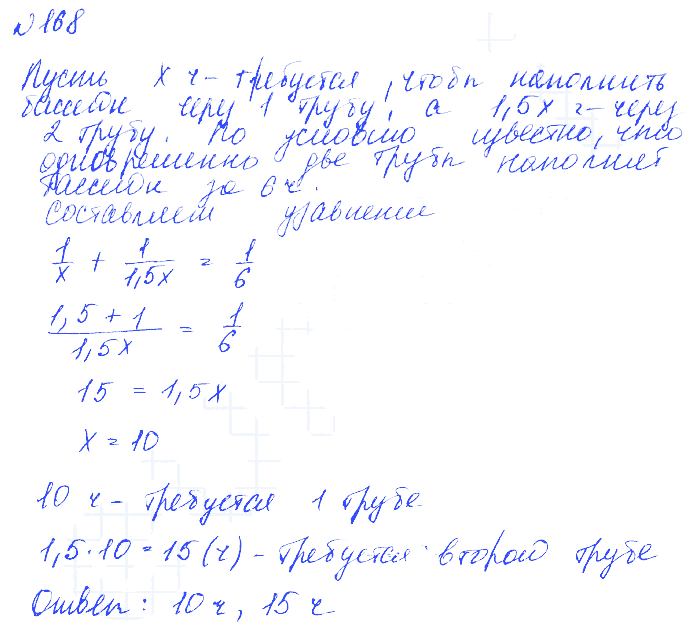 №168
Пусть х ч – требуется, чтобы наполнить
бассейн через 1 трубу, а 1,5х ч – через
2 трубу. По условию известно, что
одновременно две трубы наполнят
бассейн за 6 ч.
Составляем уравнение
1/x + 1/1,5x = 1/6
1,5+1/1,5x = 1/6
15 = 1,5x
x = 10
10 ч – требуется 1 трубе
1,5·10=15(ч) – требуется второй трубе
Ответ: 10 ч, 15 ч